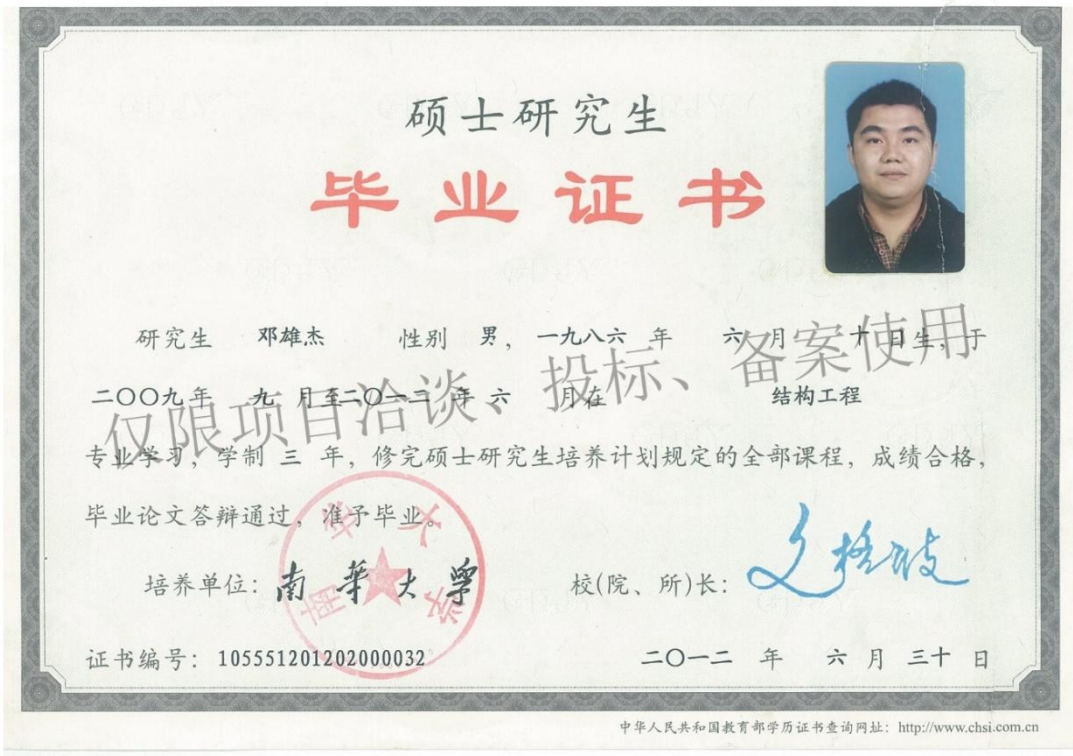 硕士研究生
毕业证书
研究生 邓雄杰 性别 男，一九八六 年 六 月 十 日生，于
二〇〇九年 九 月至二〇一二 年 六 月在 结构工程
专业学习，学制 三 年，修完硕士研究生培养计划规定的全部课程，成绩合格，
毕业论文答辩通过，准予毕业。
培养单位：南华大学 校(院、所)长：文格波
证书编号：105551201202000032 二〇一二 年 六 月 三十 日
中华人民共和国教育部学历证书查询网址：http://www.chsi.com.cn
仅限项目洽谈、投标、备案使用
南华大学